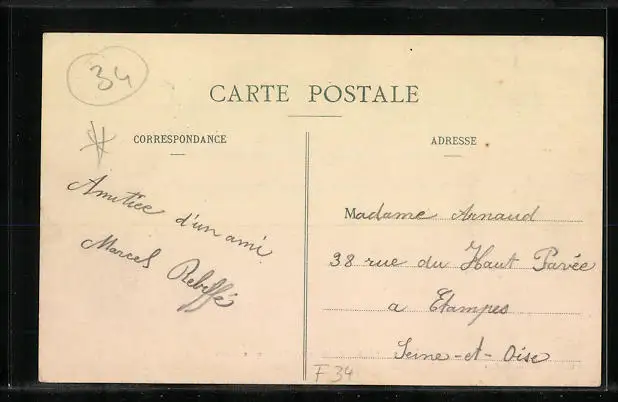 34
CARTE POSTALE
CORRESPONDANCE
Amitiée d'un ami
Marcel Rebiffé
ADRESSE
Madame Arnaud
38 rue du Haut Pavée
a Etampes
Seine-et-Oise
F 34